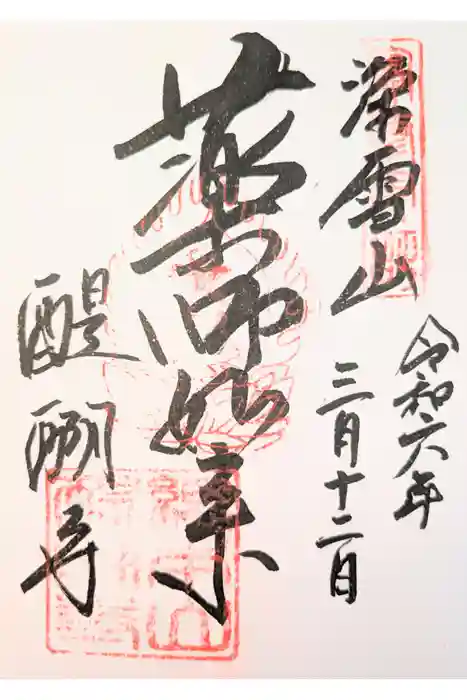 深雪山
令和六年
三月十二日
薬師如来
醍醐寺